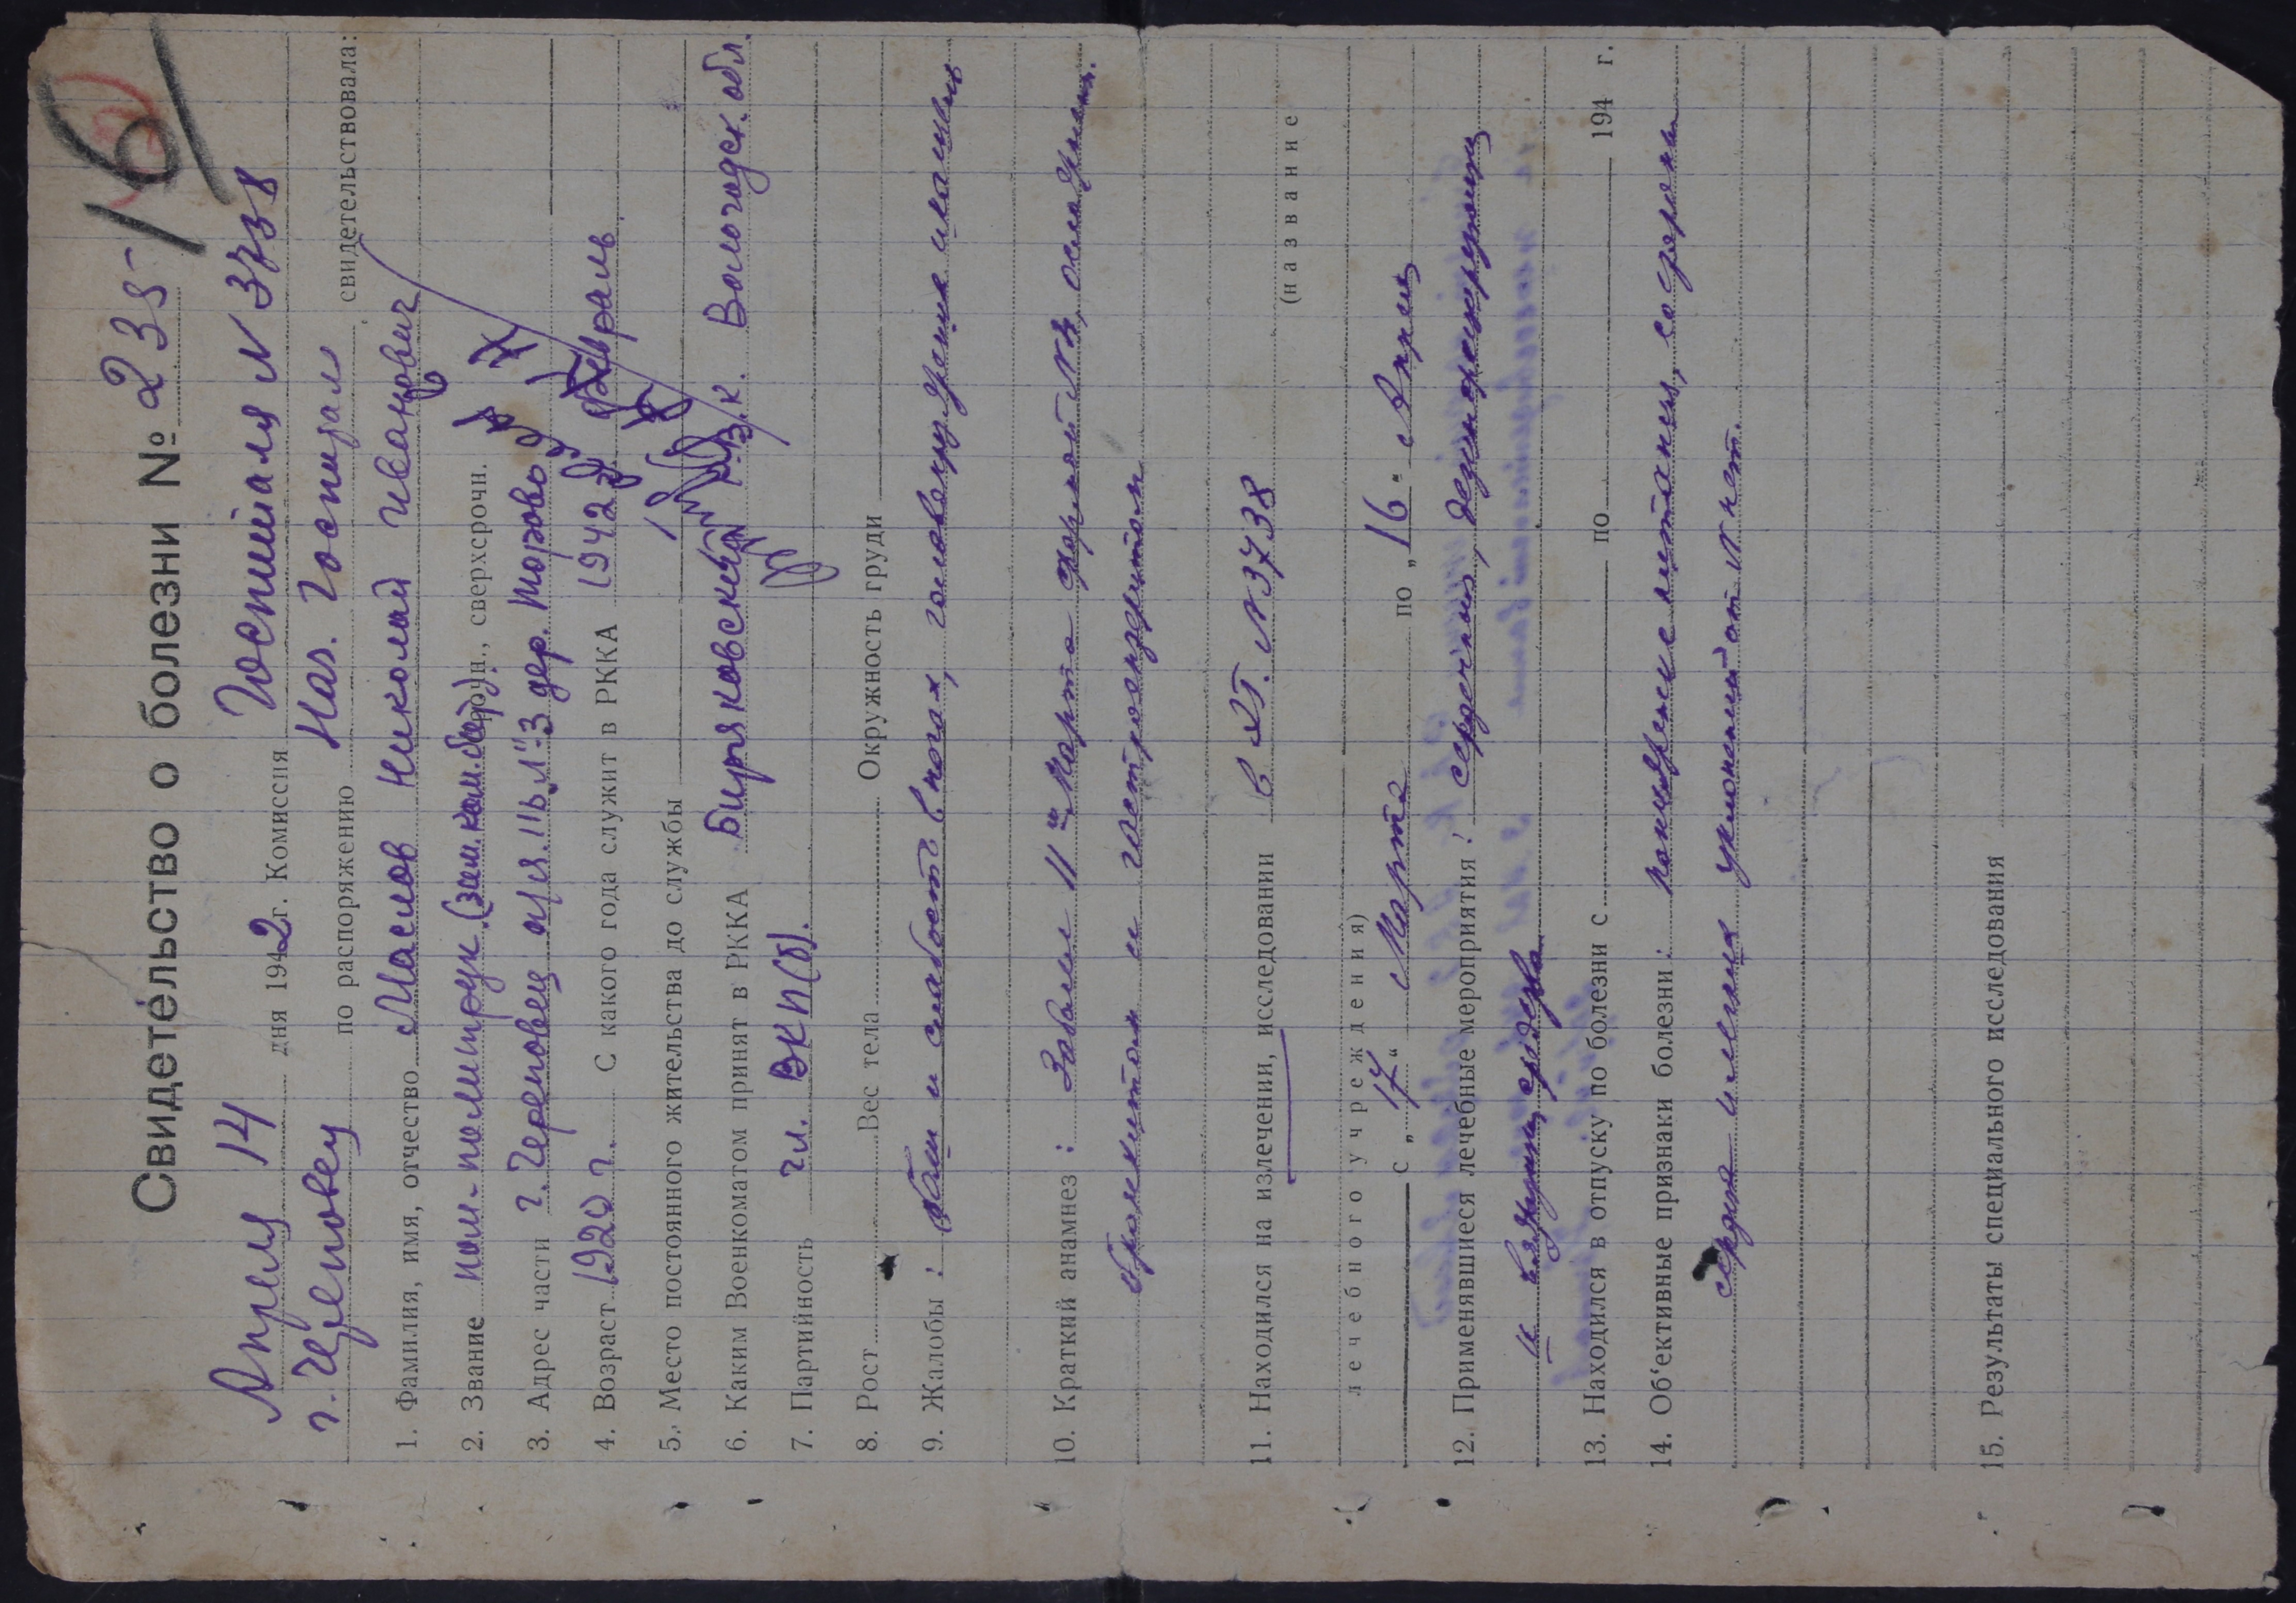 16
Свидетельство о болезни № 235
Апреля 14 дня 1942 г. Комиссия Госпиталя N 3738
г. Череповец по распоряжению Нач. Госпиталя свидетельствовала:
1. Фамилия, имя, отчество Маслов Николай Иванович
2. Звание пом. политрук (зам. ком. бат) срочн., сверхсрочн.
3. Адрес части г. Череповец п/я. 11 ь „Л"-3 дер. Морово
4. Возраст 1920 г. С какого года служит в РККА 1942 г. Февраль
5. Место постоянного жительства до службы
6. Каким Военкоматом принят в РККА Биряковский Р.В.К. Вологодск. обл.
7. Партийность чл. ВКП(б).
8. Рост Вес тела Окружность груди
9. Жалобы: и слабость в ногах, головокружение
10. Краткий анамнез: Заболел 11 Марта формой N 2,
бронхитом и гастроэнтеритом
11. Находился на излечении, исследовании в ЭГ. N 3738 (название
лечебного учреждения)
с „17" Марта по „16" Апрель
12. Применявшиеся лечебные мероприятия: сердечные,
и вяжущие средства
13. Находился в отпуску по болезни с по 194 г.
14. Об'ективные признаки болезни: пониженное питание, со стороны
сердца и легких уклонений от N нет.
15. Результаты специального исследования